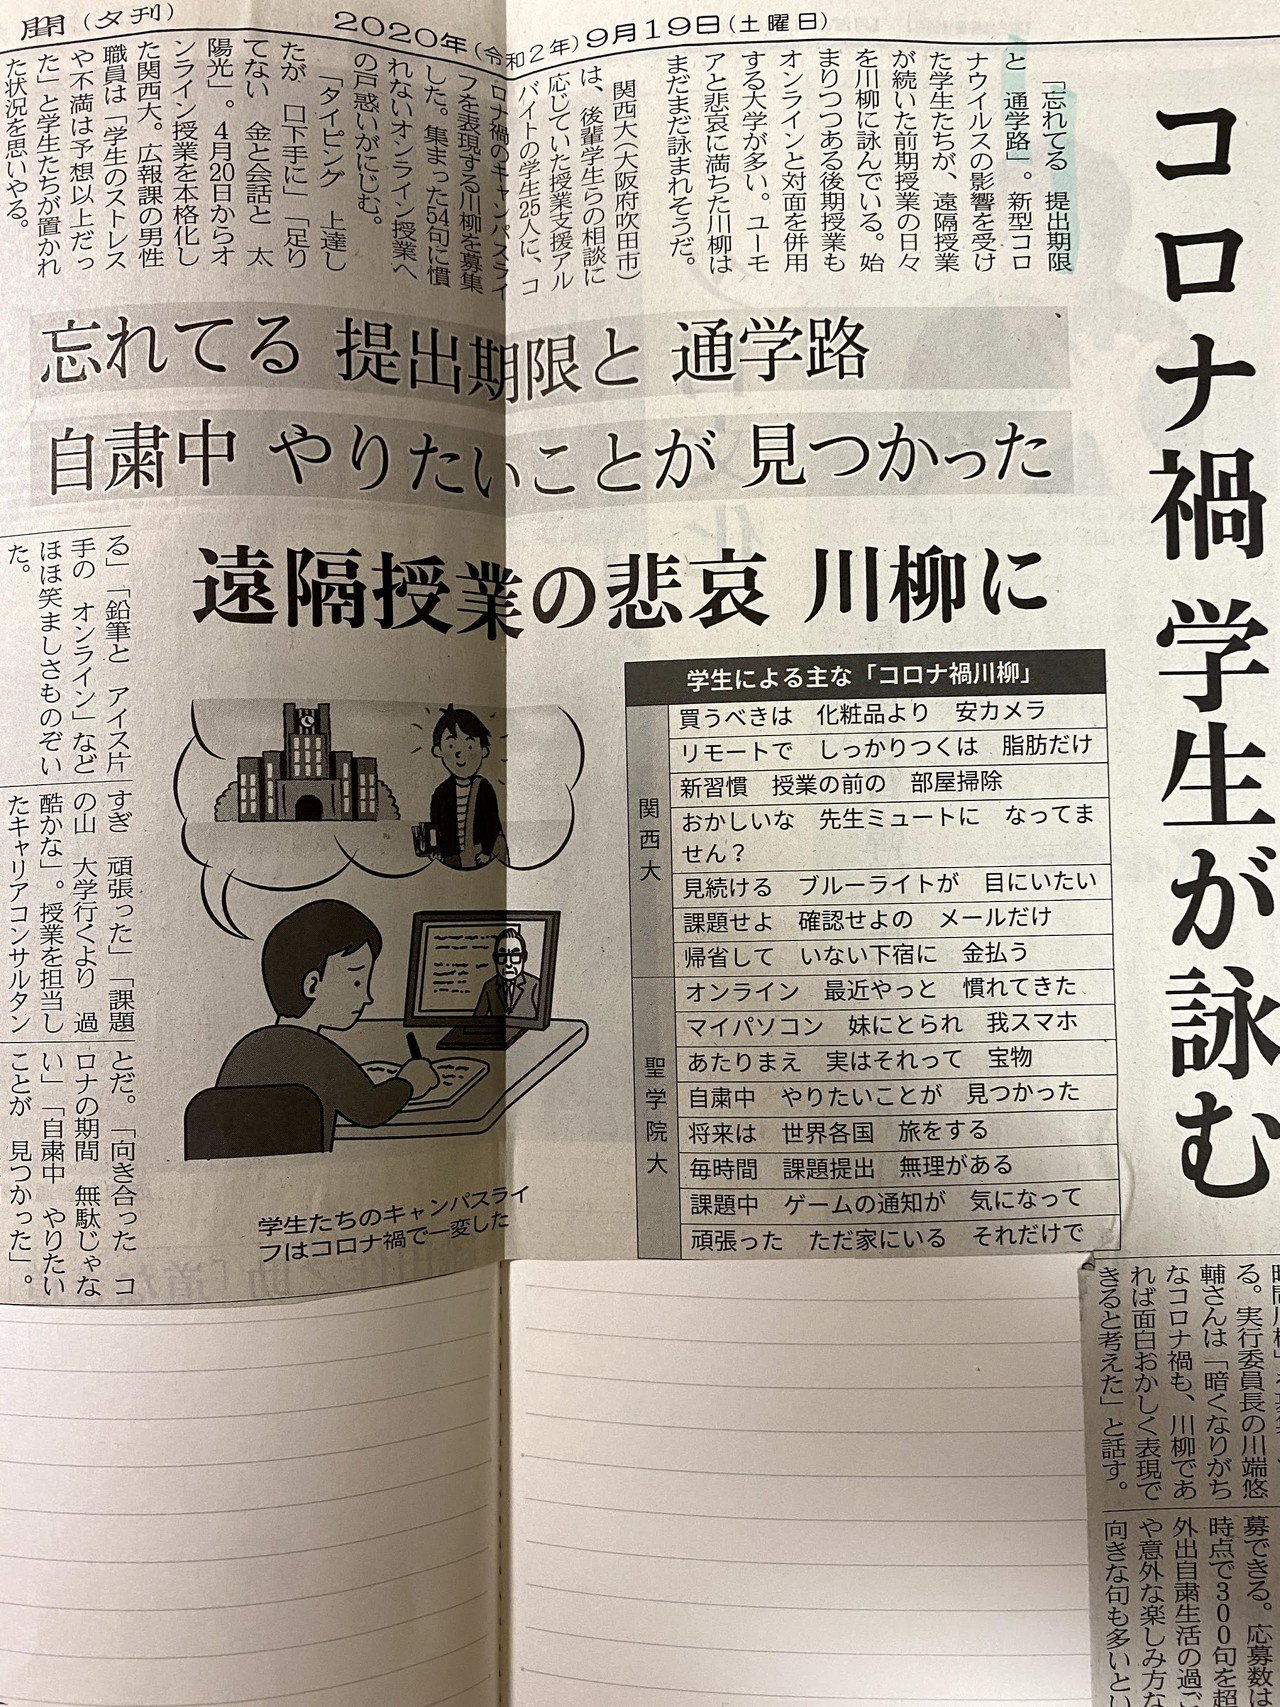 聞(夕刊)
2020年(令和2年)9月19日(土曜日)
コロナ禍 学生が詠む
「忘れてる 提出期限
と 通学路」。新型コロ
ナウイルスの影響を受け
た学生たちが、遠隔授業
が続いた前期授業の日々
を川柳に詠んでいる。始
まりつつある後期授業も
オンラインと対面を併用
する大学が多い。ユーモ
アと悲哀に満ちた川柳は
まだまだ詠まれそうだ。
関西大(大阪府吹田市)
は、後輩学生らの相談に
応じていた授業支援アル
バイトの学生25人に、コ
ロナ禍のキャンパスライ
フを表現する川柳を募集
した。集まった54句に慣
れないオンライン授業へ
の戸惑いがにじむ。
「タイピング 上達し
たが 口下手に」「足り
てない 金と会話と 太
陽光」。4月20日からオ
ンライン授業を本格化し
た関西大。広報課の男性
職員は「学生のストレス
や不満は予想以上だっ
た」と学生たちが置かれ
た状況を思いやる。
忘れてる 提出期限と 通学路
自粛中 やりたいことが 見つかった
遠隔授業の悲哀 川柳に
る」「鉛筆と アイス片
手の オンライン」など
ほほ笑ましさものぞい
た。
すぎ 頑張った」「課題
の山 大学行くより 過
酷かな」。授業を担当し
たキャリアコンサルタン
とだ。「向き合った コ
ロナの期間 無駄じゃな
い」「自粛中 やりたい
ことが 見つかった」。
学生たちのキャンパスライ
フはコロナ禍で一変した
学生による主な「コロナ禍川柳」
関西大
買うべきは 化粧品より 安カメラ
リモートで しっかりつくは 脂肪だけ
新習慣 授業の前の 部屋掃除
おかしいな 先生ミュートに なってま
せん?
見続ける ブルーライトが 目にいたい
課題せよ 確認せよの メールだけ
帰省して いない下宿に 金払う
聖学院大
オンライン 最近やっと 慣れてきた
マイパソコン 妹にとられ 我スマホ
あたりまえ 実はそれって 宝物
自粛中 やりたいことが 見つかった
将来は 世界各国 旅をする
毎時間 課題提出 無理がある
課題中 ゲームの通知が 気になって
頑張った ただ家にいる それだけで
る。実行委員長の川端悠
輔さんは「暗くなりがち
なコロナ禍も、川柳であ
れば面白おかしく表現で
きると考えた」と話す。
募できる。応募数は
時点で300句を超
外出自粛生活の過ご
や意外な楽しみ方な
向きな句も多いとい